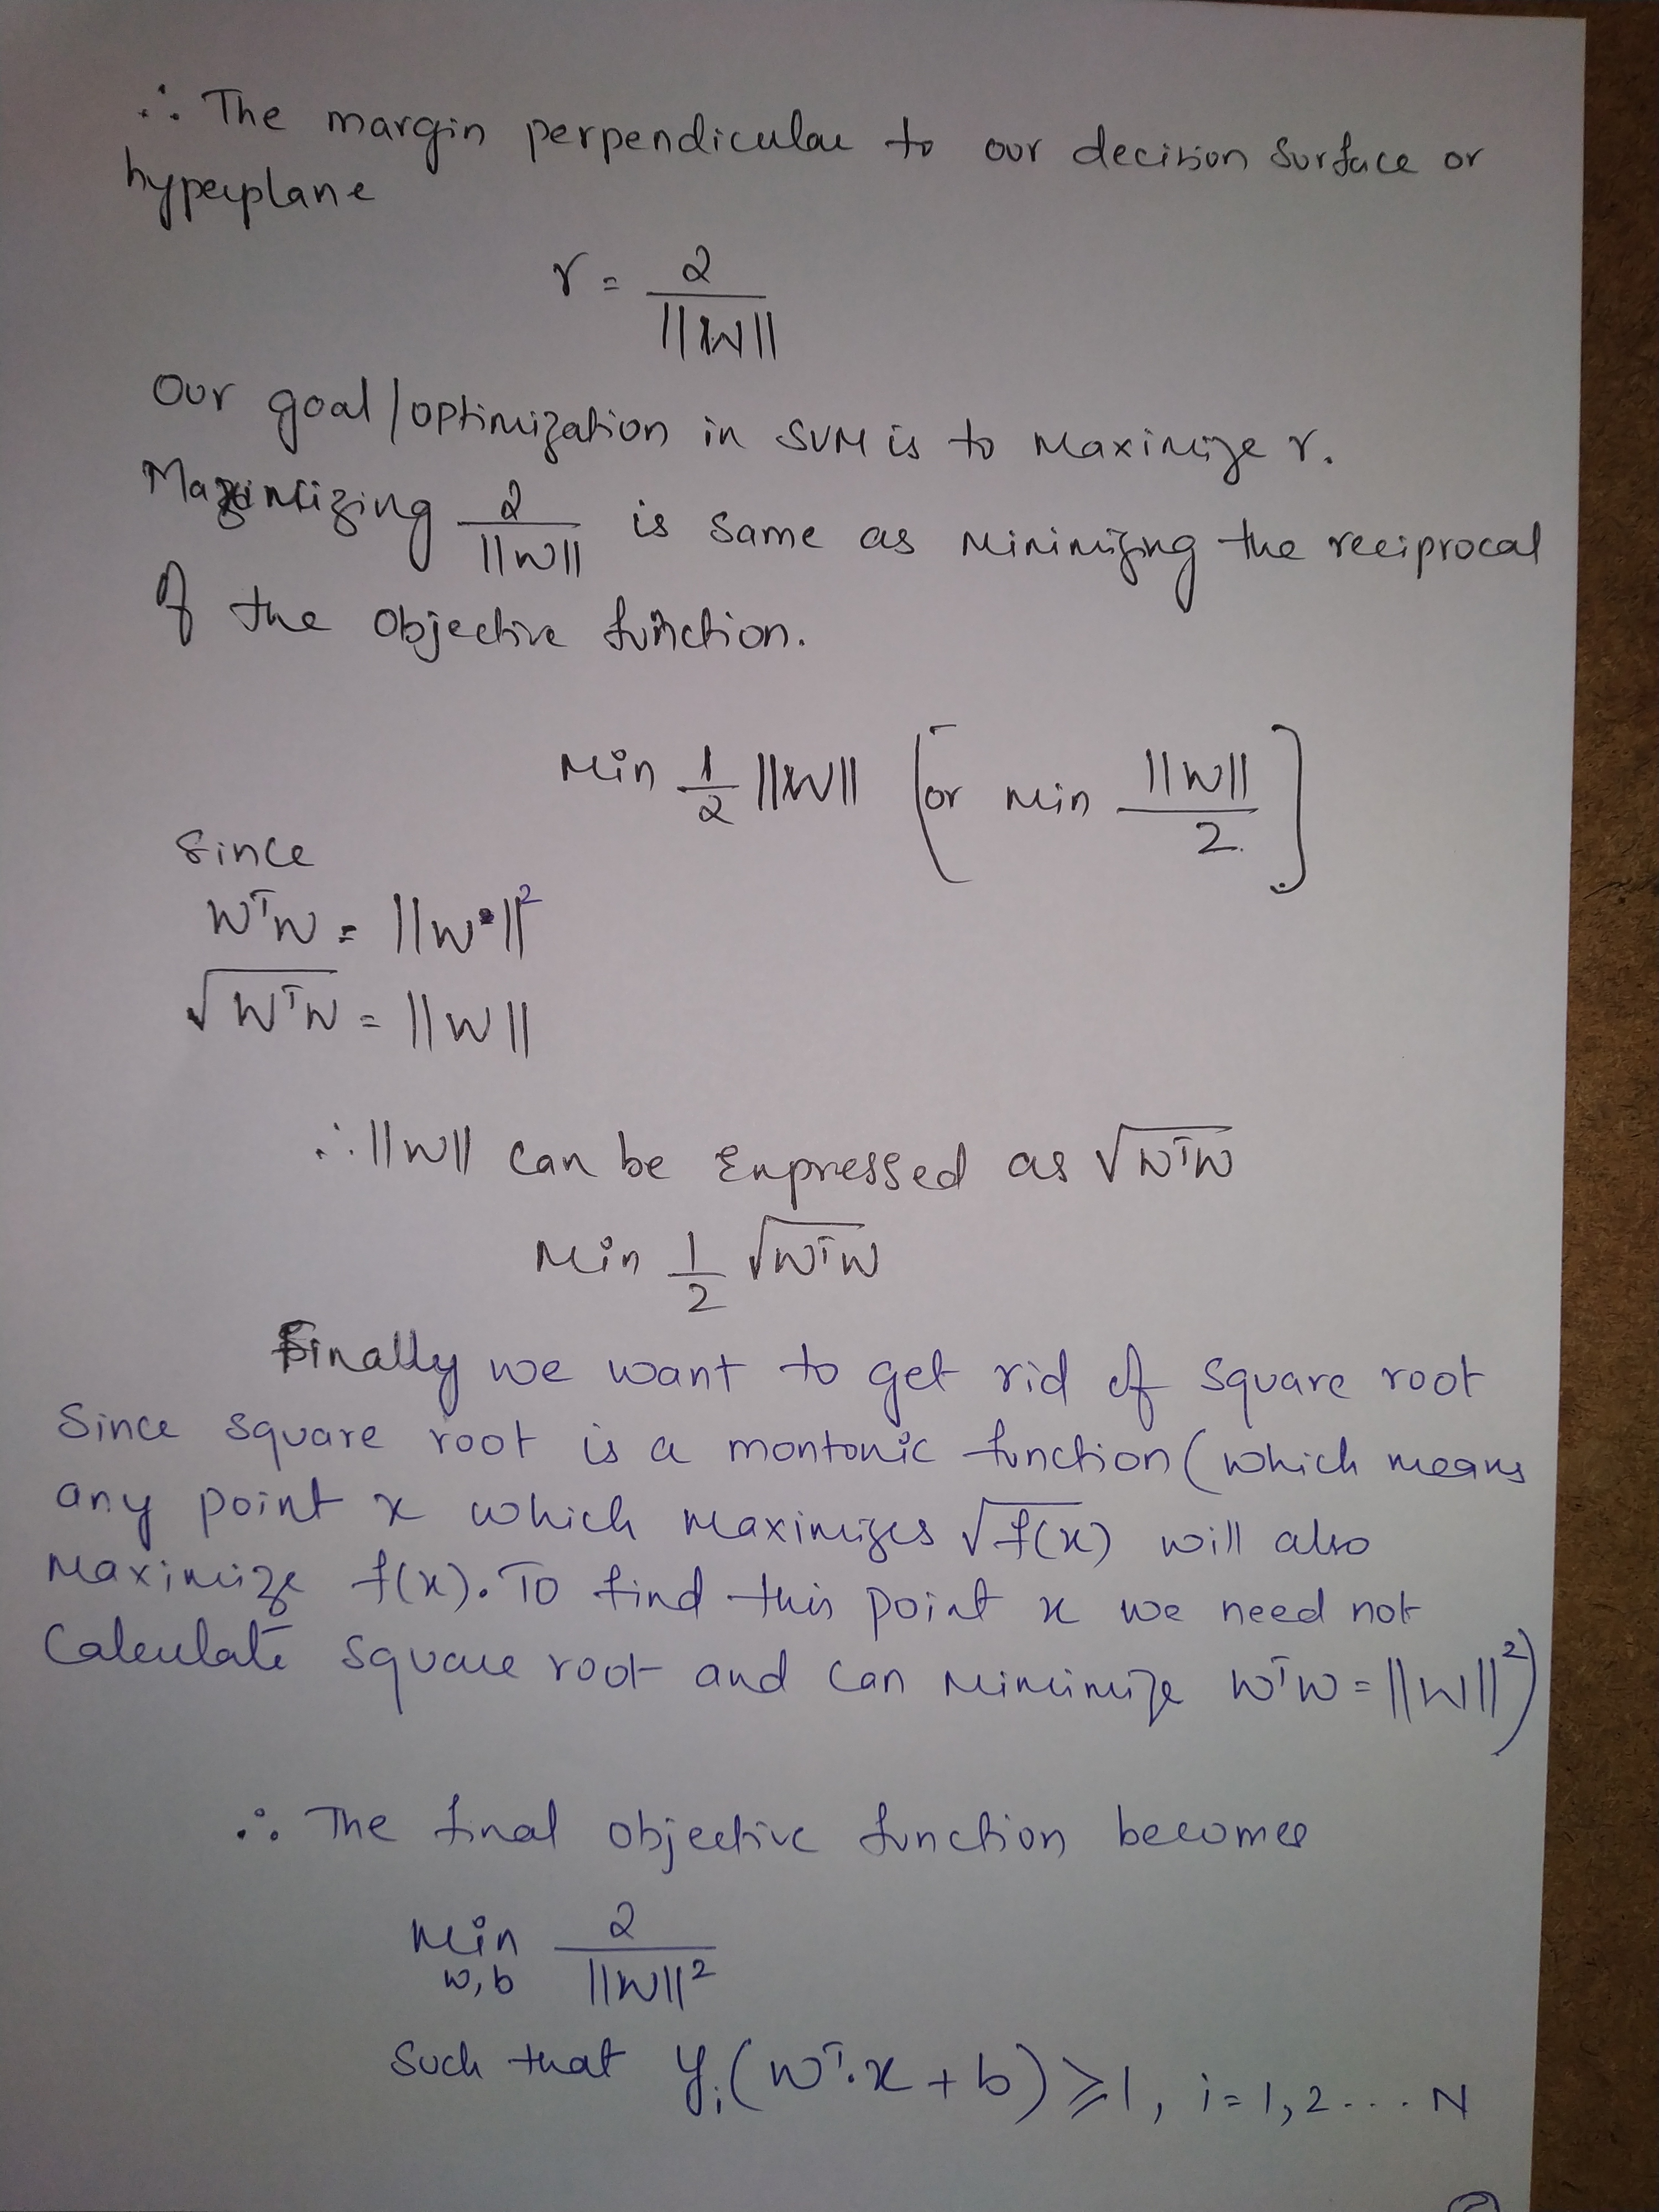 ∴ The margin perpendicular to our decision surface or
hyperplane
r = 2 / ||W||
Our goal/optimization in SVM is to maximize r.
Maximizing 2 / ||W|| is same as minimizing the reciprocal
of the objective function.
Min 1/2 ||W|| [or min ||W|| / 2.]
Since
WᵀW = ||W||²
√WᵀW = ||W||
∴ ||W|| can be Expressed as √WᵀW
Min 1/2 √WᵀW
Finally we want to get rid of square root
Since square root is a montonic function (which means
any point x which maximizes √f(x) will also
maximize f(x). To find this point x we need not
Calculate square root and can minimize WᵀW = ||W||²)
∴ The final objective function becomes
Min w,b 2 / ||W||²
Such that yᵢ(wᵀ.x + b) ≥ 1, i = 1, 2 .... N